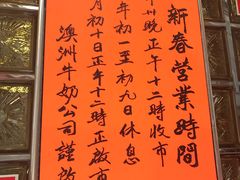 新春營業時間
卅晚正午十二時收市
年初一至初九日休息
月初十日正午十二時正啟市
澳洲牛奶公司謹啟